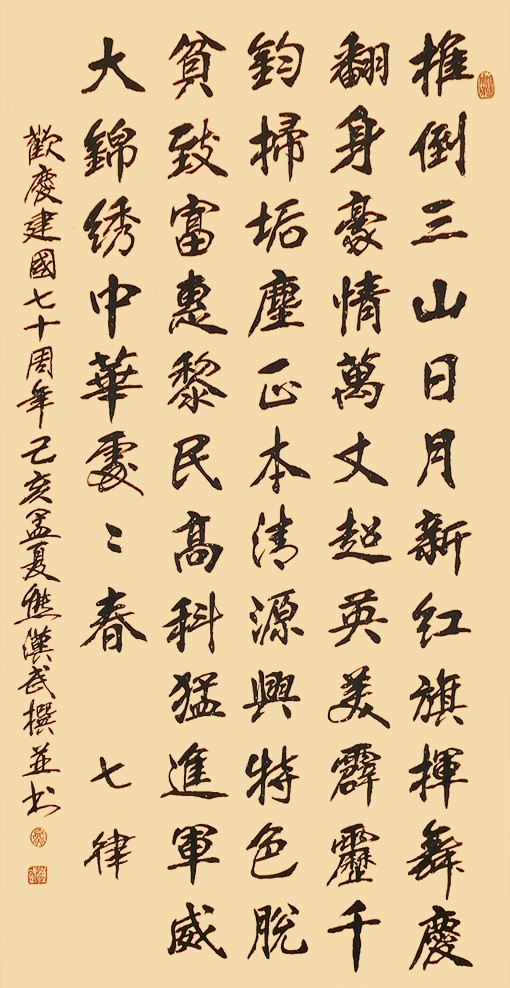 推倒三山日月新红旗揮舞慶
翻身豪情萬丈超英美霹靂千
鈞掃垢塵正本清源興特色脫
貧致富惠黎民高科猛進軍威
大錦绣中華處〻春 七律
歡慶建國七十周年己亥孟夏熊漢武撰並书